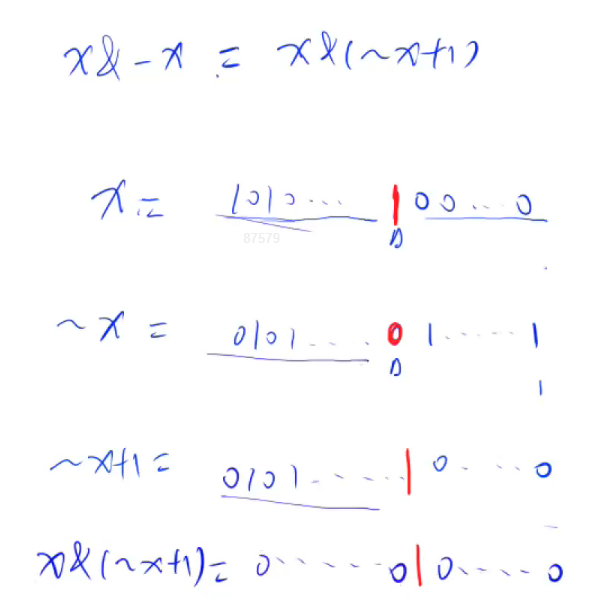 x&-x = x&(~x+1)
x = 1010... 1 00...0
87579
~x = 0101.... 0 1......1
1
~x+1 = 0101...... 1 0....0
x&(~x+1) = 0......0 1 0.....0